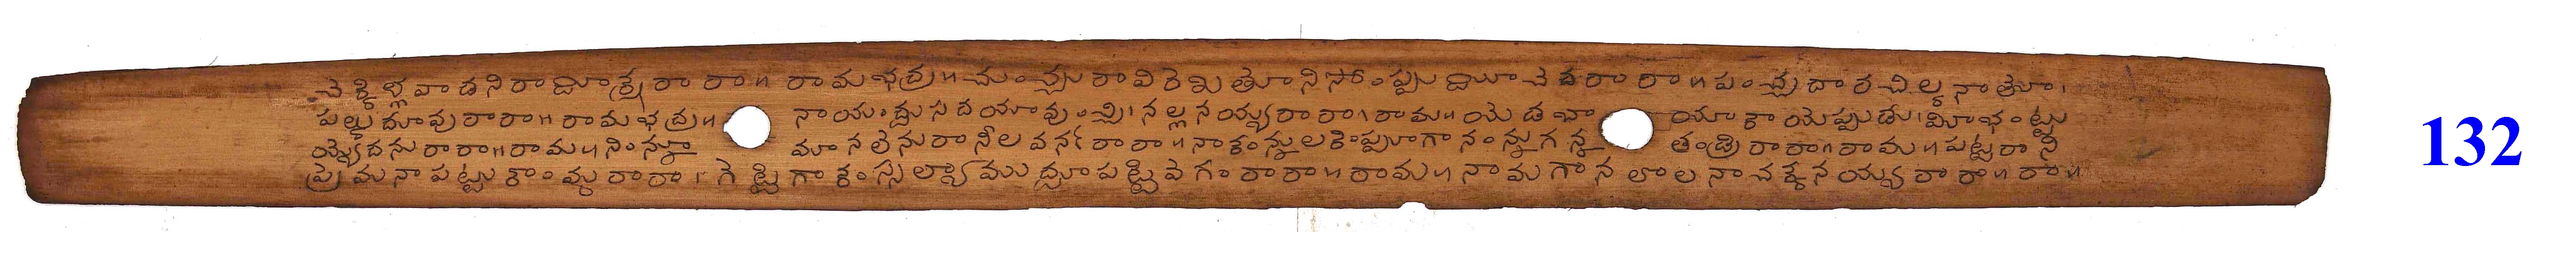 చెక్కిళ్లవాడ నిరామీశ్వ రారా॥ రామభద్ర॥ ముంచ్చురావిరెఖతొ నిసోంప్పుమీచెదరారా॥ పంచ్చదార చిల్కనాతో।
పల్కుమావు రారా॥ రామభద్ర॥ నాయందుసదయావుంచ్చి। నల్లనయ్య రారా। రామ॥ యెడబాయాకాయెప్పుడు। మీభంట్టు
య్యేదనురారా॥ రామ॥ నింన్నూ మానలెనురా నీలవర్న రారా॥ నాకంన్నులకింప్పూగా నంన్నుగన్న తండ్రి రారా॥ రామ॥ పట్టరాని
ప్రెమనా పట్టుకొంమ్మ రారా। గెట్టిగా కంస్సల్యాముద్దూపట్టి వెగం రారా॥ రామ॥ నామగానలొల నాచక్కనయ్య రారా॥ రా॥
132